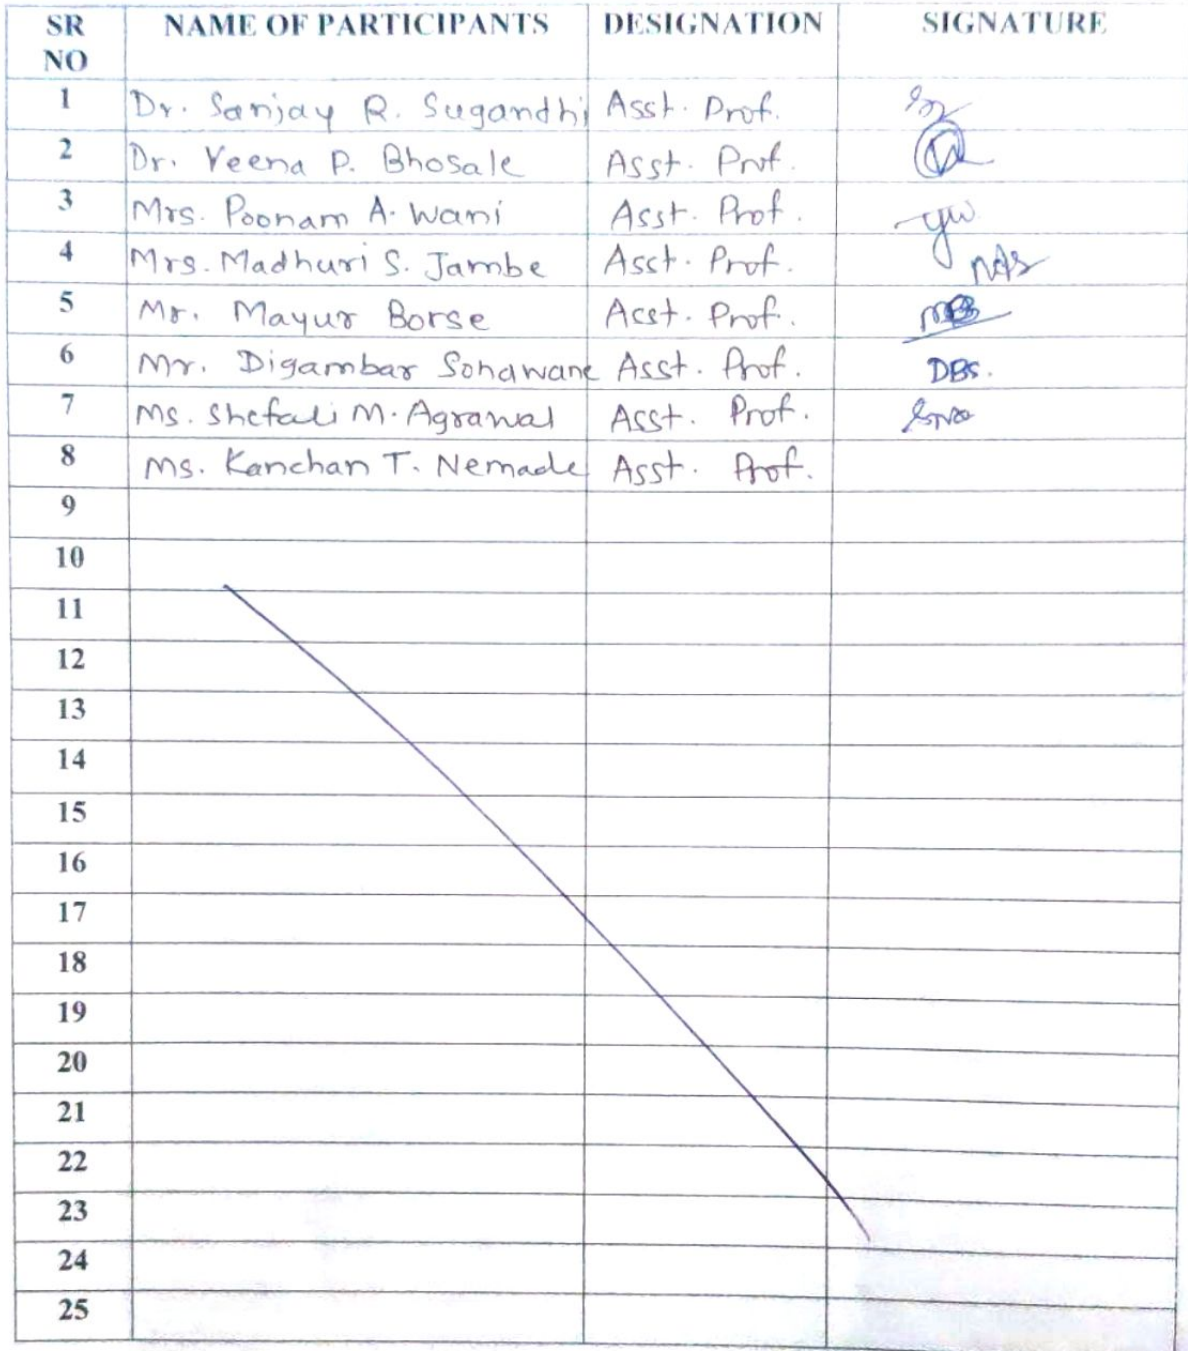 SR NO NAME OF PARTICIPANTS DESIGNATION SIGNATURE
1 Dr. Sanjay R. Sugandhi Asst. Prof.
2 Dr. Veena P. Bhosale Asst. Prof.
3 Mrs. Poonam A. Wani Asst. Prof.
4 Mrs. Madhuri S. Jambe Asst. Prof.
5 Mr. Mayur Borse Asst. Prof.
6 Mr. Digambar Sonawane Asst. Prof. DBS.
7 Ms. Shefali M. Agrawal Asst. Prof.
8 Ms. Kanchan T. Nemade Asst. Prof.
9
10
11
12
13
14
15
16
17
18
19
20
21
22
23
24
25